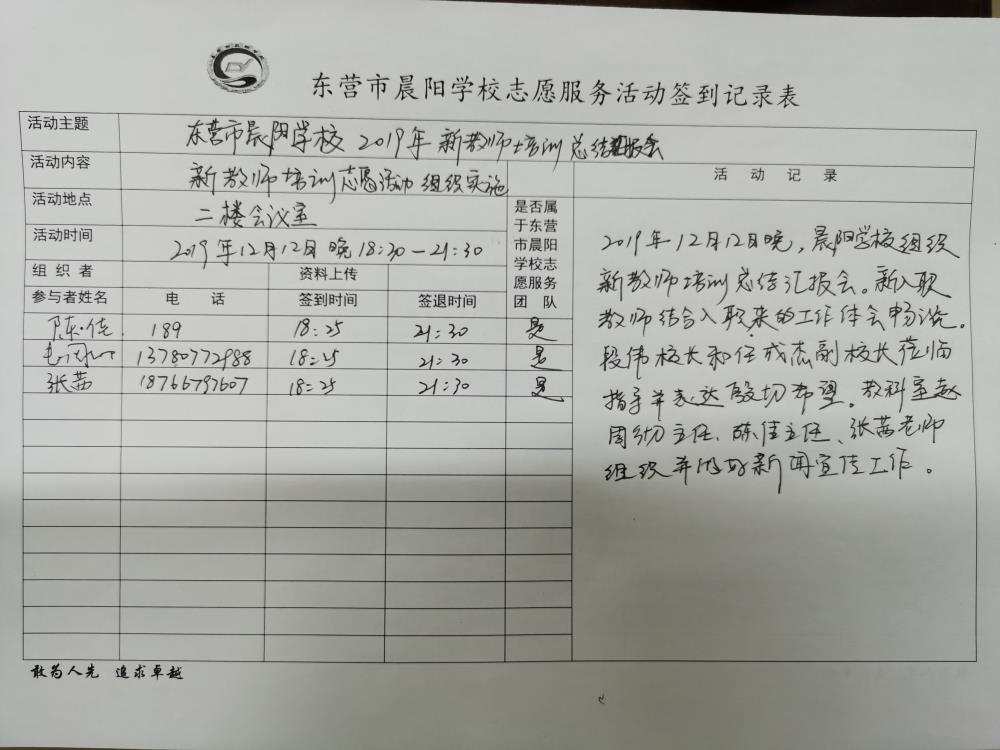 东营市晨阳学校志愿服务活动签到记录表
活动主题 东营市晨阳学校 2019年新教师培训总结汇报会
活动内容 新教师培训志愿活动组织实施
活动地点 二楼会议室
活动时间 2019年12月12日晚18:30—21:30
组织者 资料上传
参与者姓名 电话 签到时间 签退时间 是否属于东营市晨阳学校志愿服务团队
陈佳 189 18:25 21:30 是
13780772988 18:25 21:30 是
张茜 18766797607 18:25 21:30 是
活动记录
2019年12月12日晚,晨阳学校组织
新教师培训总结汇报会。新入职
教师结合入职来的工作体会畅谈。
段伟校长和任成杰副校长莅临
指导并表达殷切希望。教科室赵
周 主任、陈佳主任、张茜老师
组织并做好新闻宣传工作。
敢为人先 追求卓越